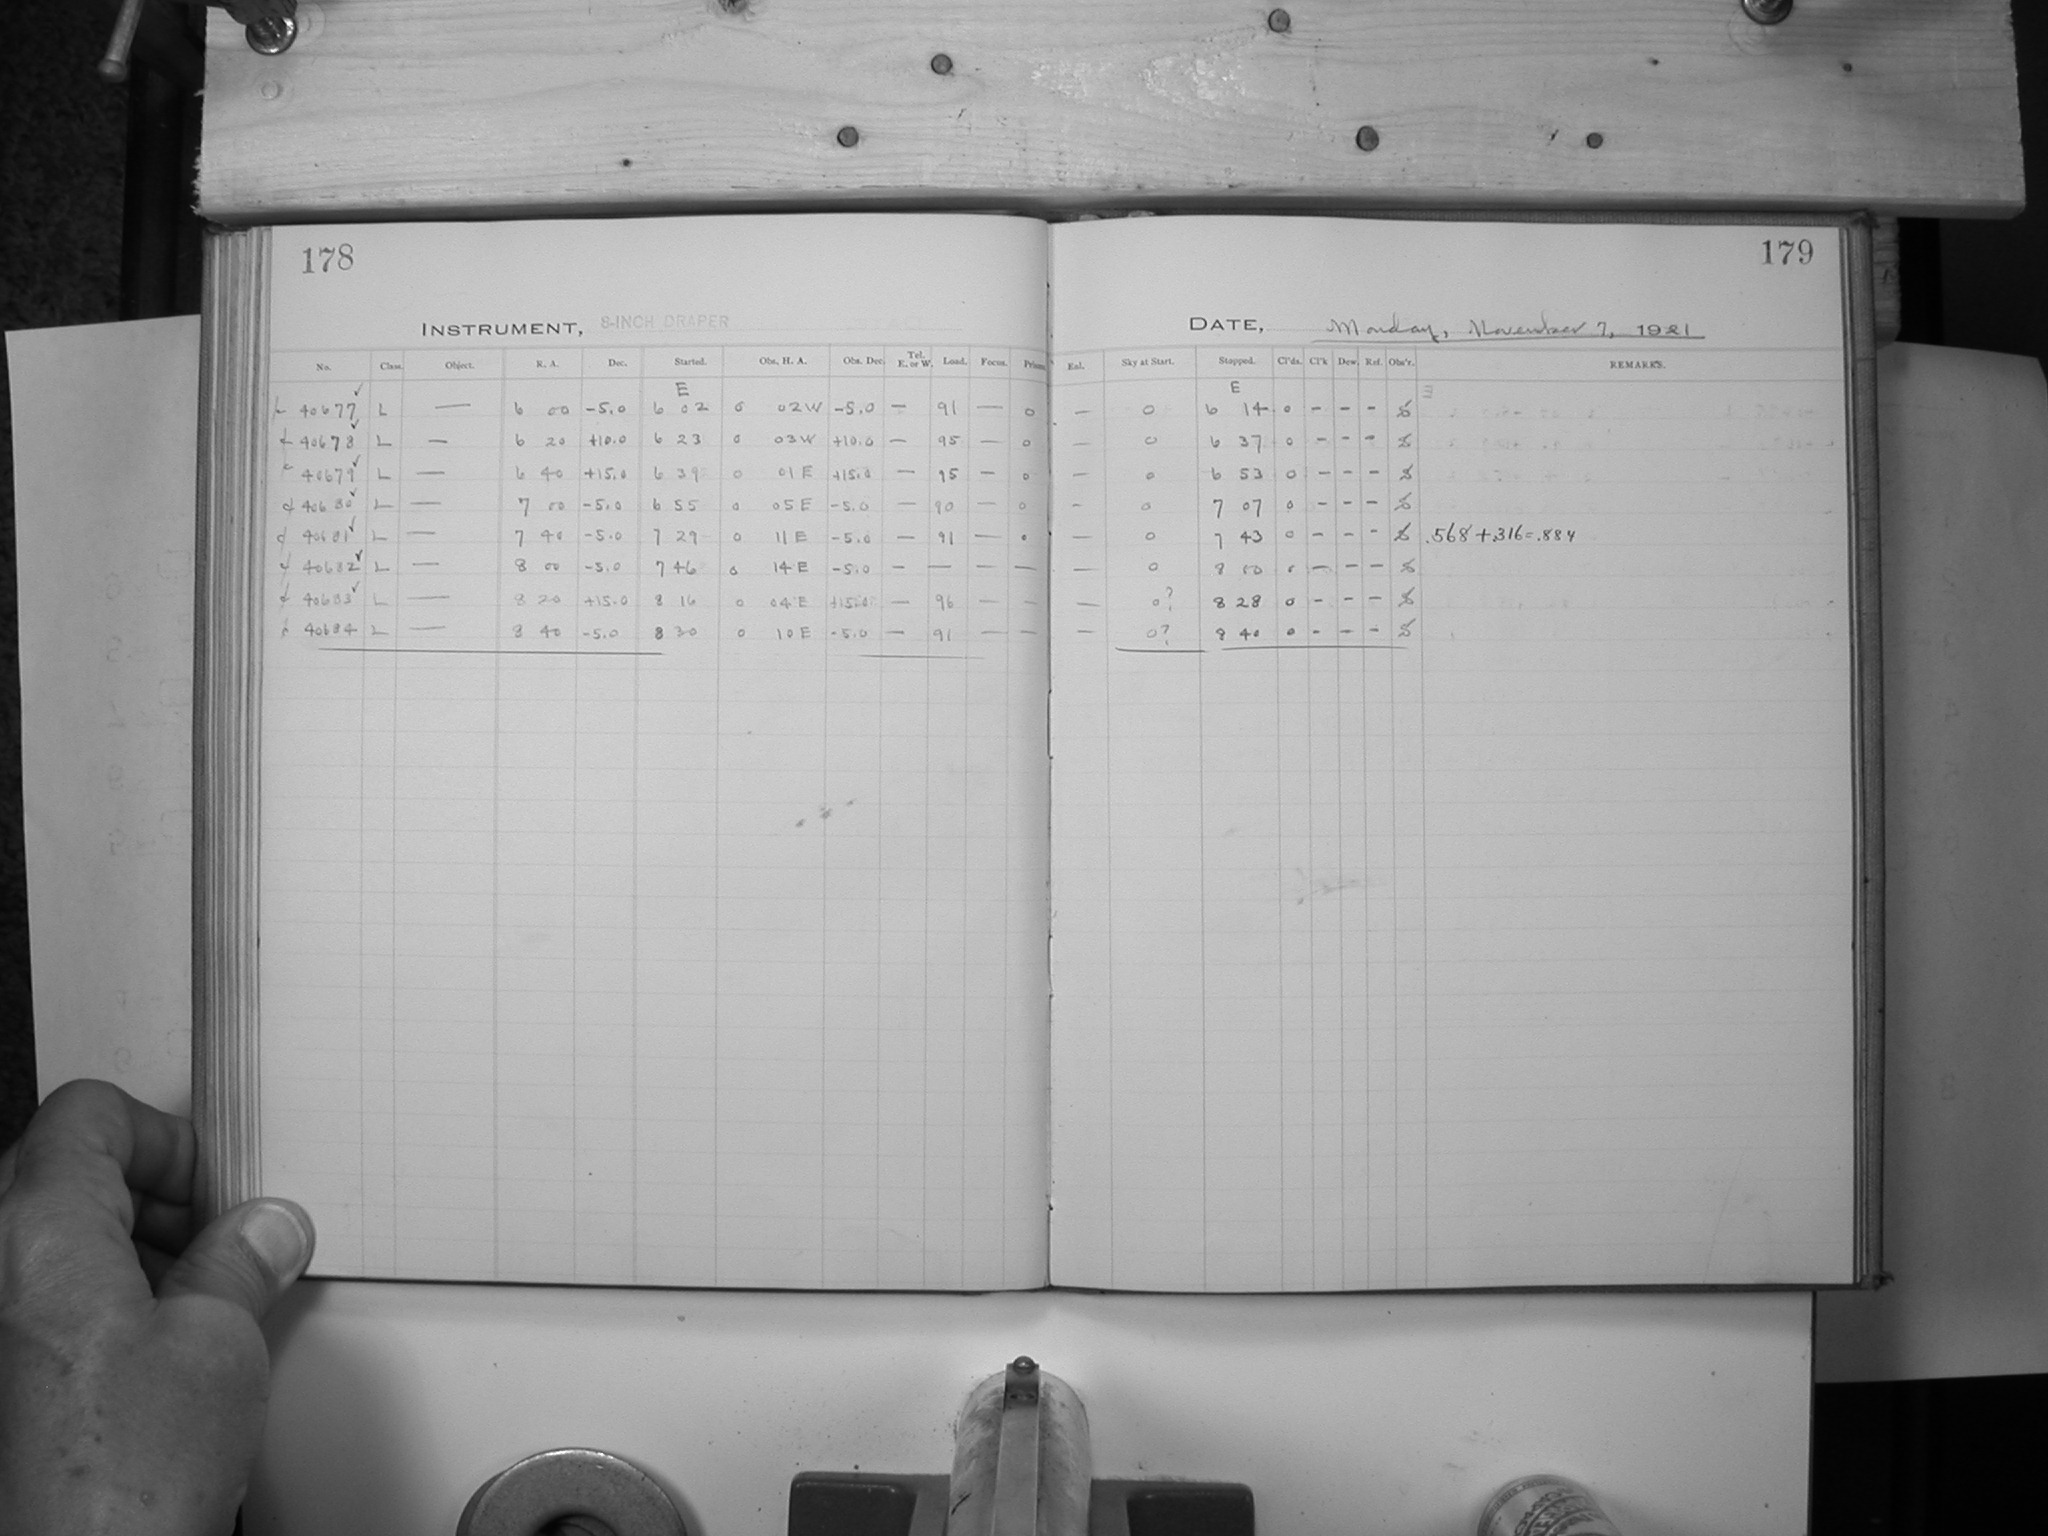 178
179
INSTRUMENT, 8-INCH DRAPER
DATE, Monday, November 7, 1921
No. Class. Object. R. A. Dec. Started. Obs. H. A. Obs. Dec. Tel. E. or W. Load. Focus. Prism. Eal. Sky at Start. Stopped. Cl'ds. Cl'k Dew. Ref. Obs'r. REMARKS.
E E
40677 L — 6 00 -5.0 6 02 0 02 W -5.0 — 91 — 0 — 0 6 14 0 - - -
40678 L — 6 20 +10.0 6 23 0 03 W +10.0 — 95 — 0 — 0 6 37 0 - - -
40679 L — 6 40 +15.0 6 39 0 01 E +15.0 — 95 — 0 — 0 6 53 0 - - -
40680 L — 7 00 -5.0 6 55 0 05 E -5.0 — 90 — 0 - 0 7 07 0 - - -
40681 L — 7 40 -5.0 7 29 0 11 E -5.0 — 91 — 0 — 0 7 43 0 - - - .568+.316=.884
40682 L — 8 00 -5.0 7 46 0 14 E -5.0 — — — — — 0 8 00 0 - - -
40683 L — 8 20 +15.0 8 16 0 04 E +15.0 — 96 — — — 0? 8 28 0 - - -
40684 L — 8 40 -5.0 8 30 0 10 E -5.0 — 91 — — — 0? 8 40 0 - - -